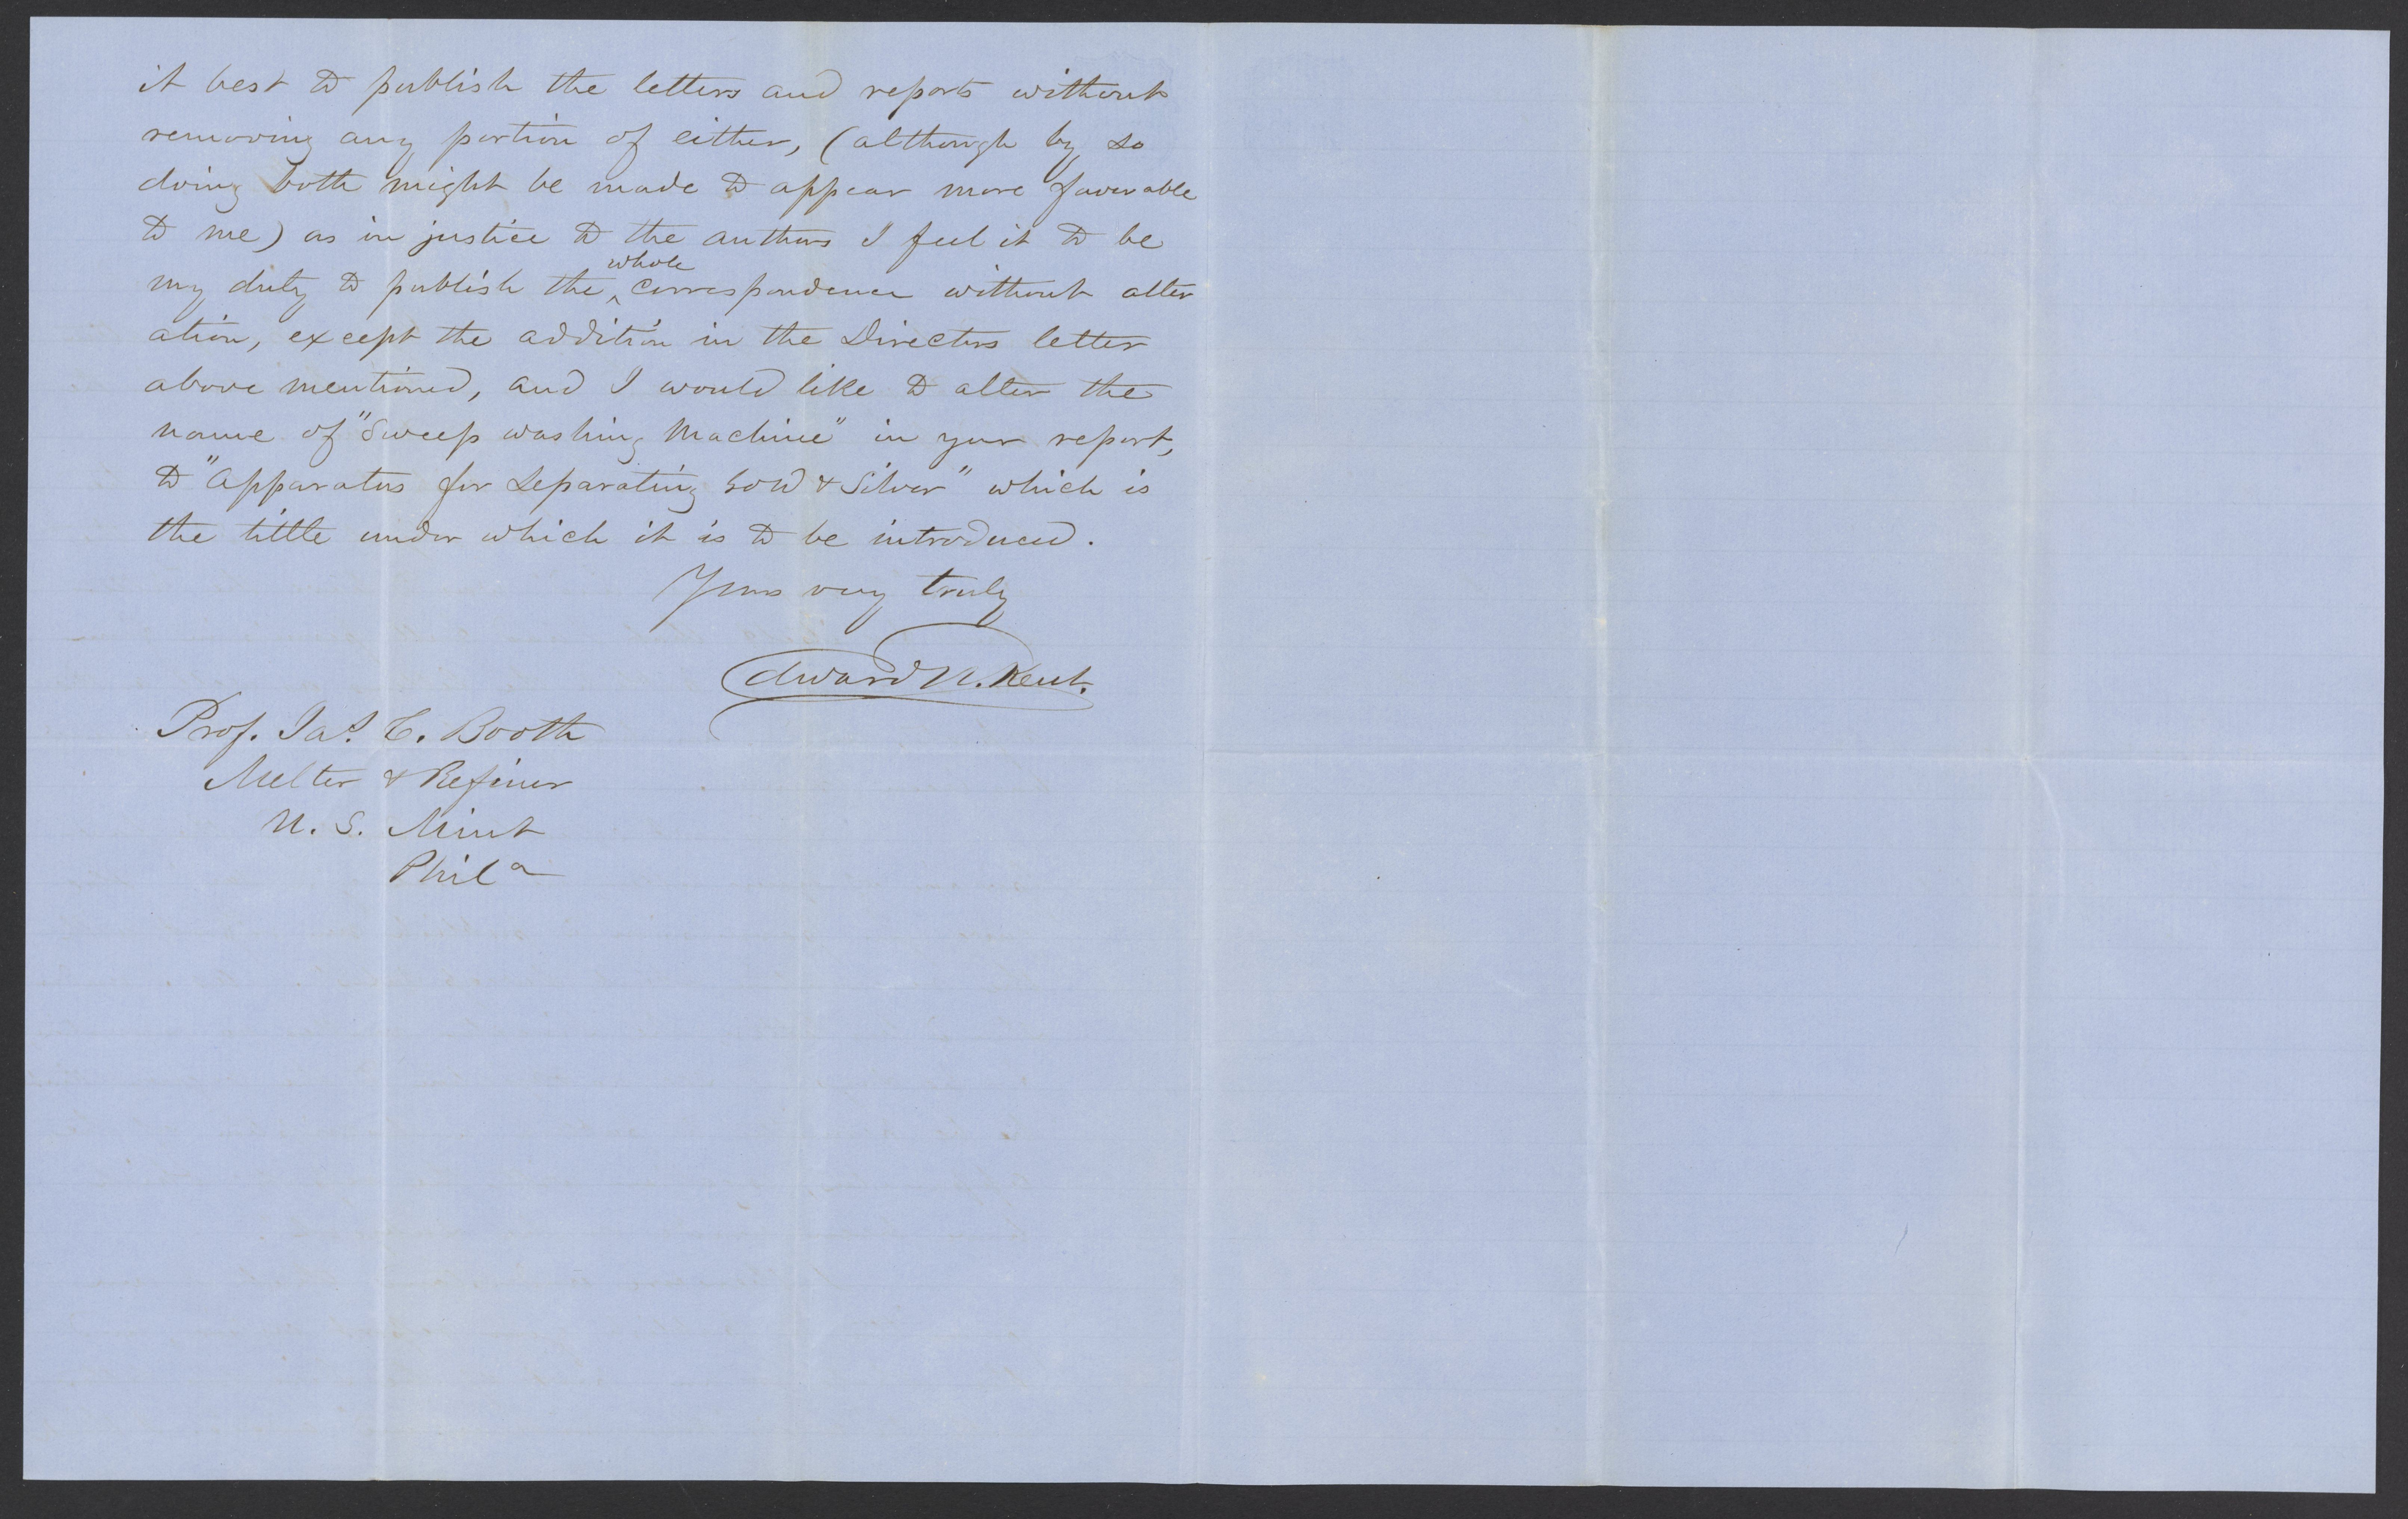 it best to publish the letters and reports without
removing any portion of either, (although by so
doing both might be made to appear more favorable
to me) as in justice to the authors I feel it to be
whole
my duty to publish the ‸ correspondence without alter
ation, except the addition in the Directors letter
above mentioned, and I would like to alter the
name of "Sweep washing Machine" in your report,
to "Apparatus for Separating Gold & Silver" which is
the tittle under which it is to be introduced.
Yours very truly
Edward N. Kent.
Prof. Jas. C. Booth
Melter & Refiner
U. S. Mint
Phila